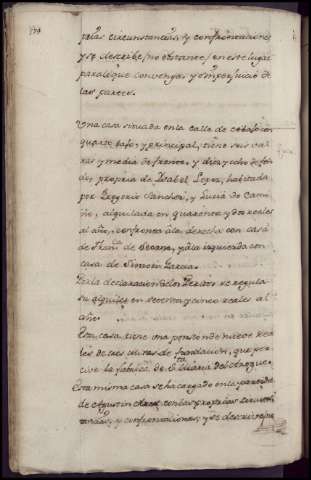 pelas circunstancias, y confrontaciones
y se describe (no obstante) en este lugar
para lo que convenga, y sin perjuicio de
las partes.
Una casa situada en la calle de
quarto bajo, y principal, tiene seis va=
ras y media de frente, y diez y ocho de fon=
do, propria de Isabel Lopez, habitada
por Gregorio Sanchez, y Lucia de
alquilada en quarenta y dos reales
al año, confronta a la derecha con casa
de Fran.ca de , y a la izquierda con
casa de Simon
Por la declaracion de los Peritos se regula
su alquiler en setenta y cinco reales al
año.
Esta casa tiene una pension de nueve rea=
les de tres misas de fundacion, que per=
cive la fabrica de S.ta Maria del
Esta misma casa se ha cargado en la partida
de Agustin con las proprias circuns=
tancias, y confrontaciones, y se describe